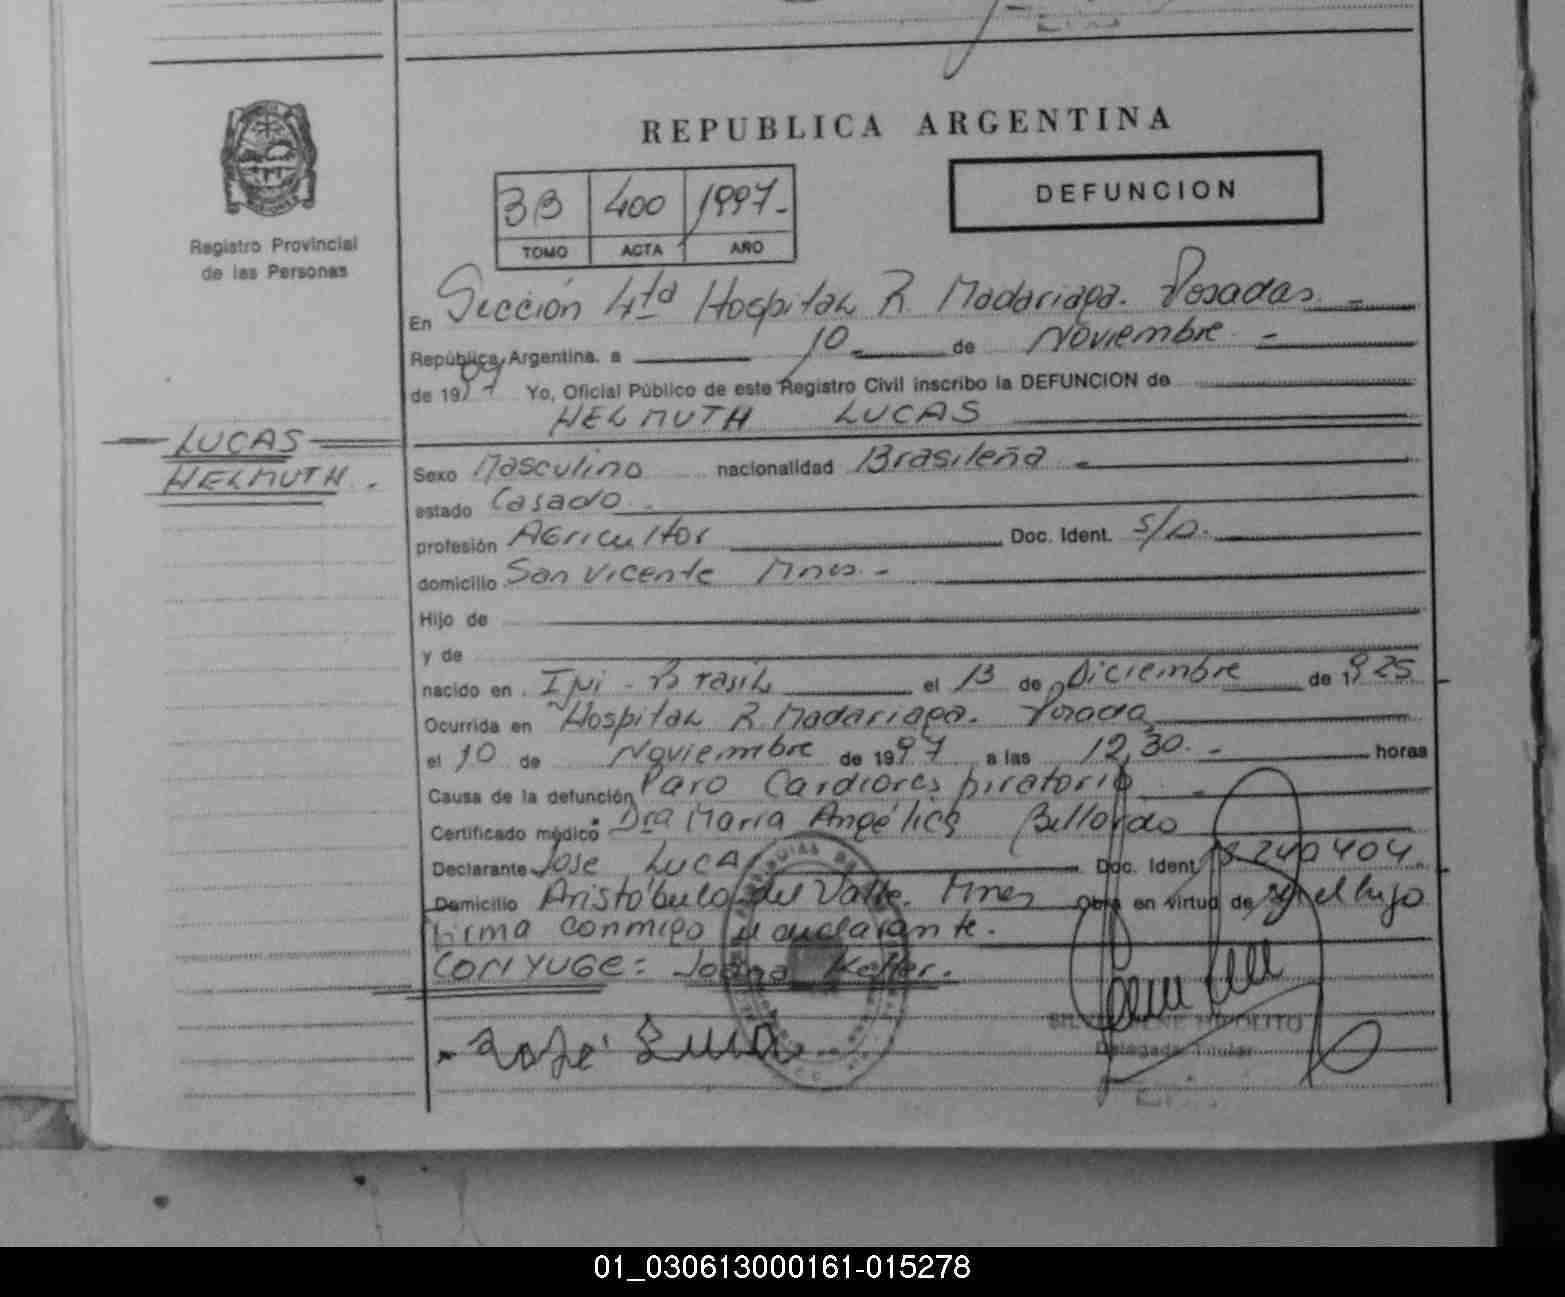 REPUBLICA ARGENTINA
DEFUNCION
3B 400 1997.-
TOMO ACTA AÑO
Registro Provincial
de las Personas
En Sección 4ta Hospital R. Madariaga. Posadas. -
República Argentina, a 10 de Noviembre -
de 1997 Yo, Oficial Público de este Registro Civil inscribo la DEFUNCION de
HELMUTH LUCAS
LUCAS
HELMUTH.
Sexo Masculino nacionalidad Brasileña -
estado Casado.
profesión Agricultor Doc. Ident. S/D.
domicilio San Vicente Mnes. -
Hijo de
y de
nacido en Ijui - Brasil el 13 de Diciembre de 1925
Ocurrida en Hospital R. Madariaga. Posadas
el 10 de Noviembre de 1997 a las 12,30. - horas
Causa de la defunción Paro Cardiorespiratorio
Certificado médico Dra Maria Angélica Billordo
Declarante José Lucas Doc. Ident. 18240404.
Domicilio Aristóbulo del Valle. Mnes Obra en virtud de ser el hijo
Firma conmigo el declarante.
CONYUGE: Joana Keller.
José Luca
HIPOLITO
Delegada Titular
01_030613000161-015278